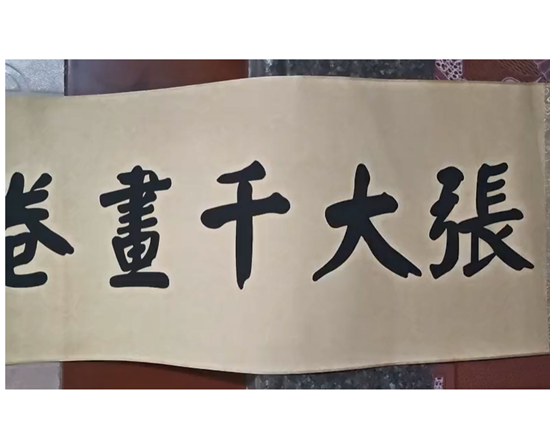 張大千畫卷